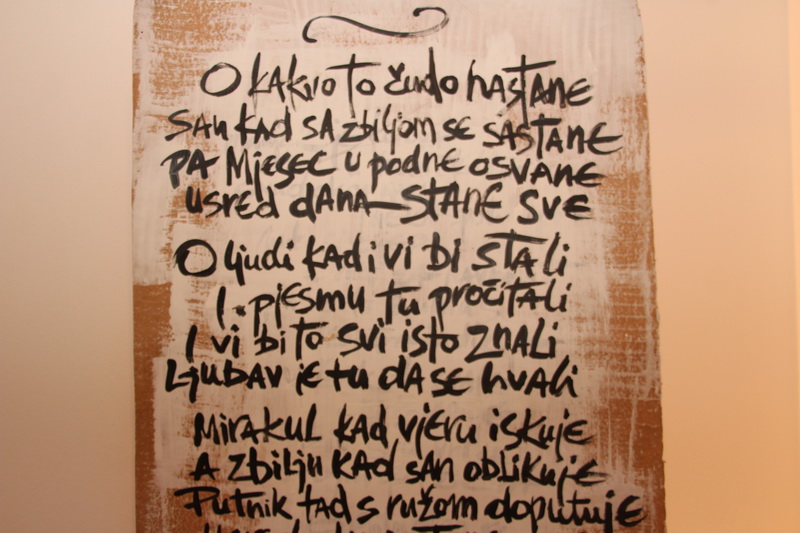 O kakvo to čudo nastane
San kad sa zbiljom se sastane
Pa Mjesec u podne osvane
usred dana–stane sve
O ljudi kad i vi bi stali
I pjesmu tu pročitali
I vi bi to svi isto znali
Ljubav je tu da se hvali
Mirakul kad vjeru iskuje
A zbilju kad san oblikuje
Putnik tad s ružom doputuje